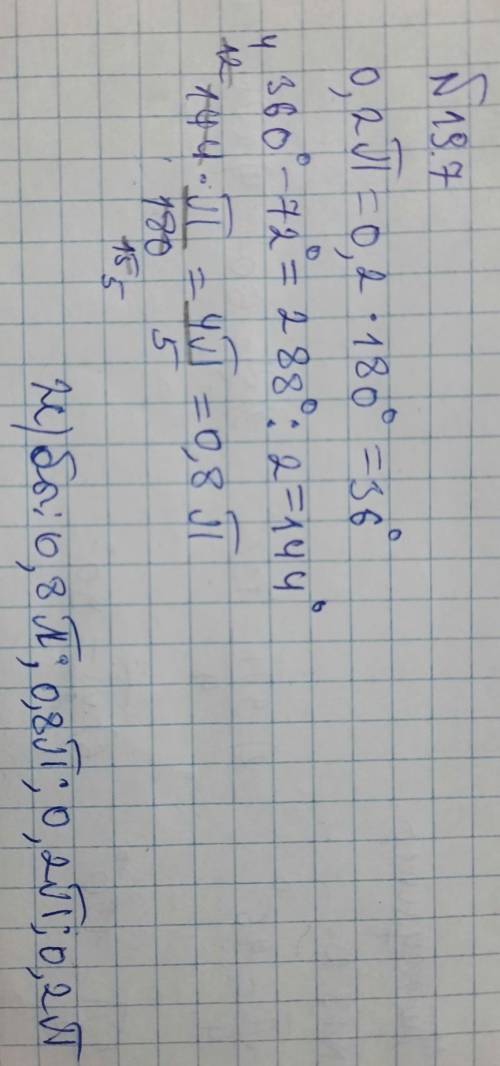 № 19.7
0,2π = 0,2 · 180° = 36°
360° – 72° = 288° : 2 = 144°
144 · π / 180 = 4π / 5 = 0,8π
12
4
15
5
0,8π; 0,8π; 0,2π; 0,2π